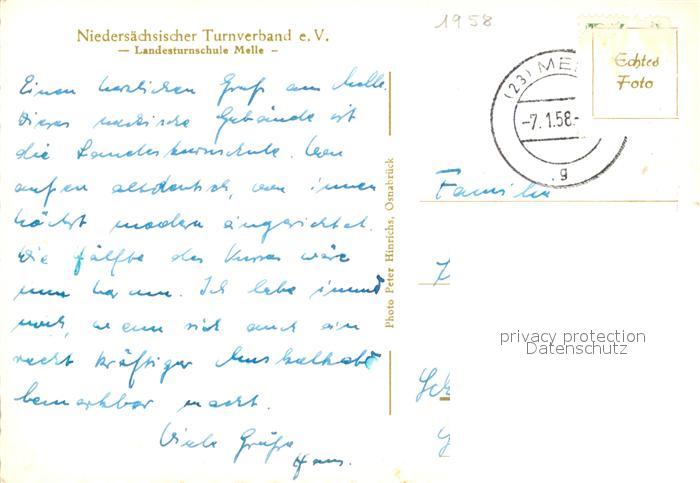 1958
Niedersächsischer Turnverband e. V.
— Landesturnschule Melle —
Echtes
Foto
(23) ME
-7.1.58.-
g
Einen herzlichen Gruß aus Melle.
Dieses Gebäude ist
die Landesturnschule. Von
außen altdeutsch, von innen
höchst modern eingerichtet.
Die Hälfte des Kurses wäre
nun herum. Ich lebe immer
noch, wenn sich auch ein
recht kräftiger Muskelkater
bemerkbar macht.
Viele Grüße
Hans.
Photo Peter Hinrichs, Osnabrück
Familie
privacy protection
Datenschutz